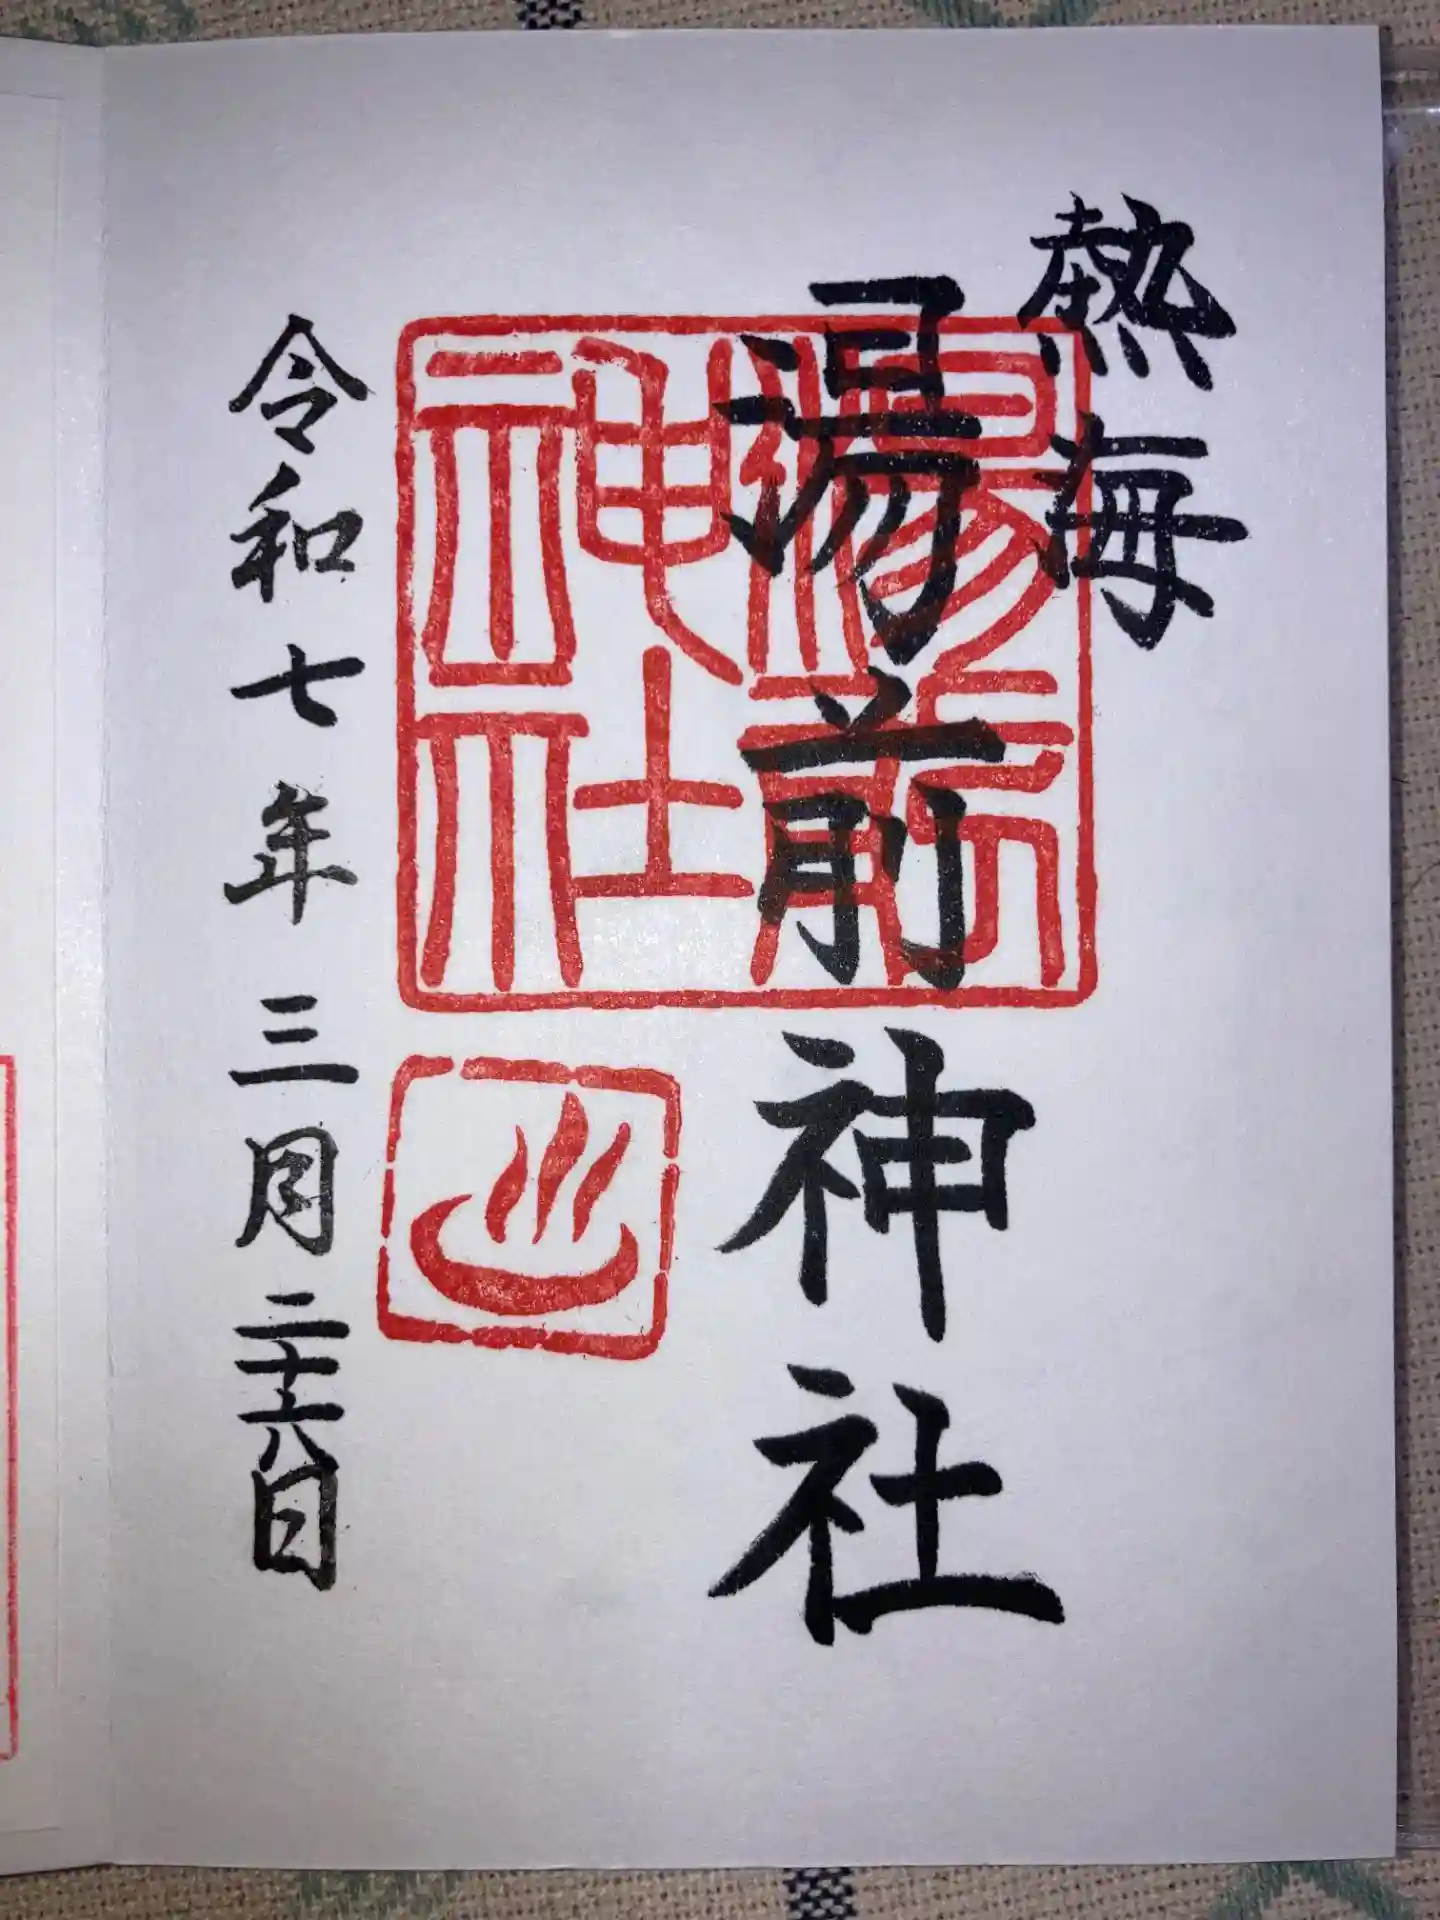 熱海
湯前神社
湯前
神社
令和七年三月二十八日